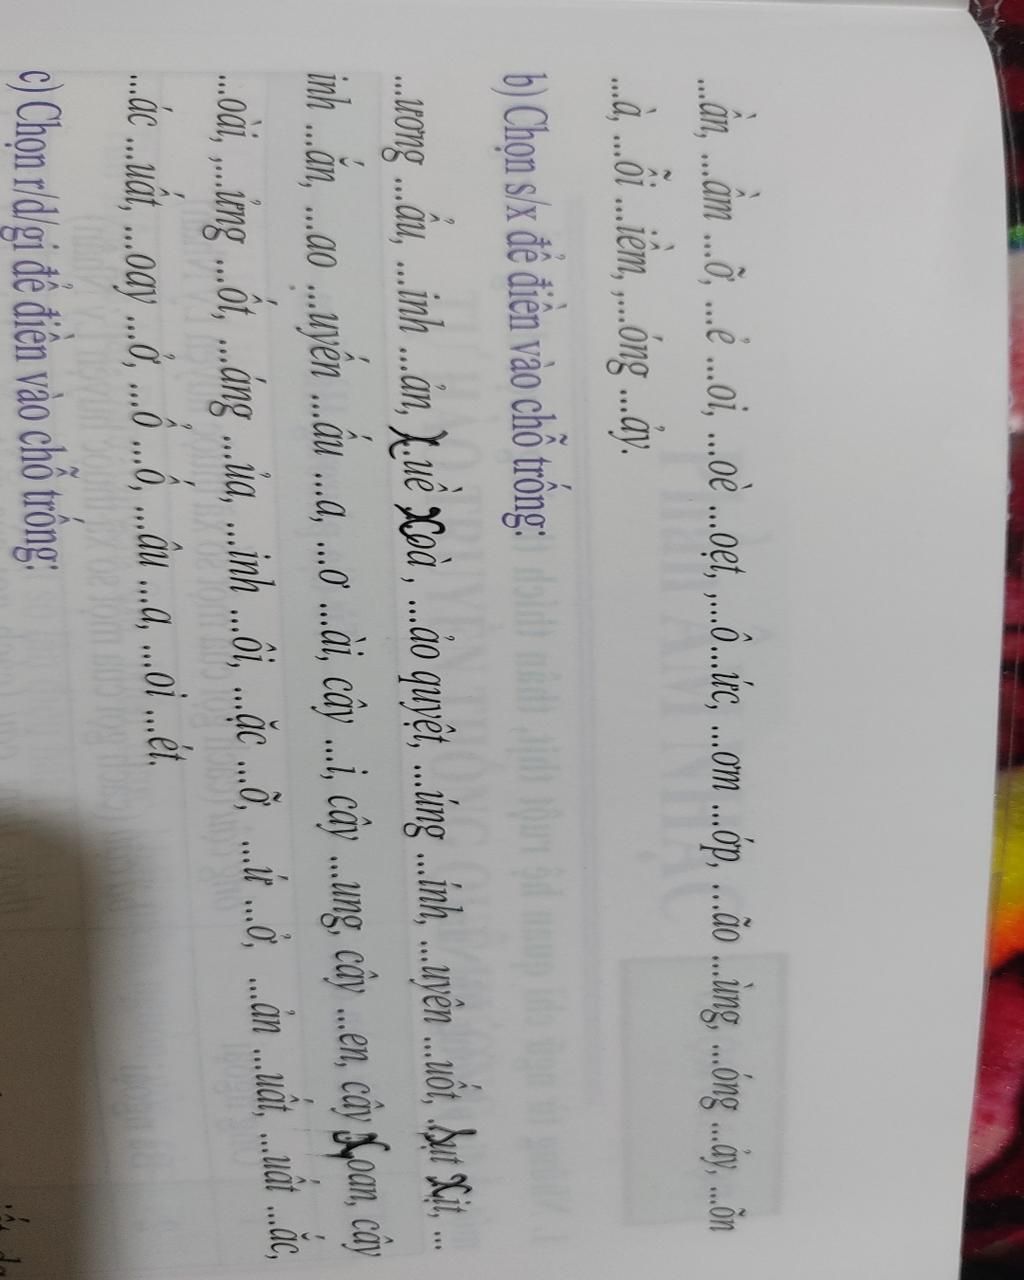 ...ần, ...ầm ...ỡ, ...ẻ ...oi, ...oè ...oẹt, ,...ô...ức, ...ơm ...óp, ...ão ...ùng, ...óng ...ảy, ...õn
...à, ...ỗi ...iềm, ,...óng ...ảy.
b) Chọn s/x để điền vào chỗ trống:
...ương ...ẩu, ...inh ...ản, X.uề Xoà, ...ảo quyệt, ...úng ...ính, ...uyên ...uốt, ..Sụt Xịt, ...
inh ...ắn, ...ao ...uyến ...ấu ...a, ...ơ ...ài, cây ...i, cây ...ung, cây ...en, cây Xoan, cây
...oài, ,...ửng ...ốt, ...áng ...ủa, ...inh ...ôi, ...ặc ...ỡ, ...ứ ...ở, ...ản ...uất, ...uất ...ắc,
...ác ...uất, ...oay ...ở, ...ổ ...ố, ...âu ...a, ...oi ...ét.
c) Chọn r/d/gi để điền vào chỗ trống: